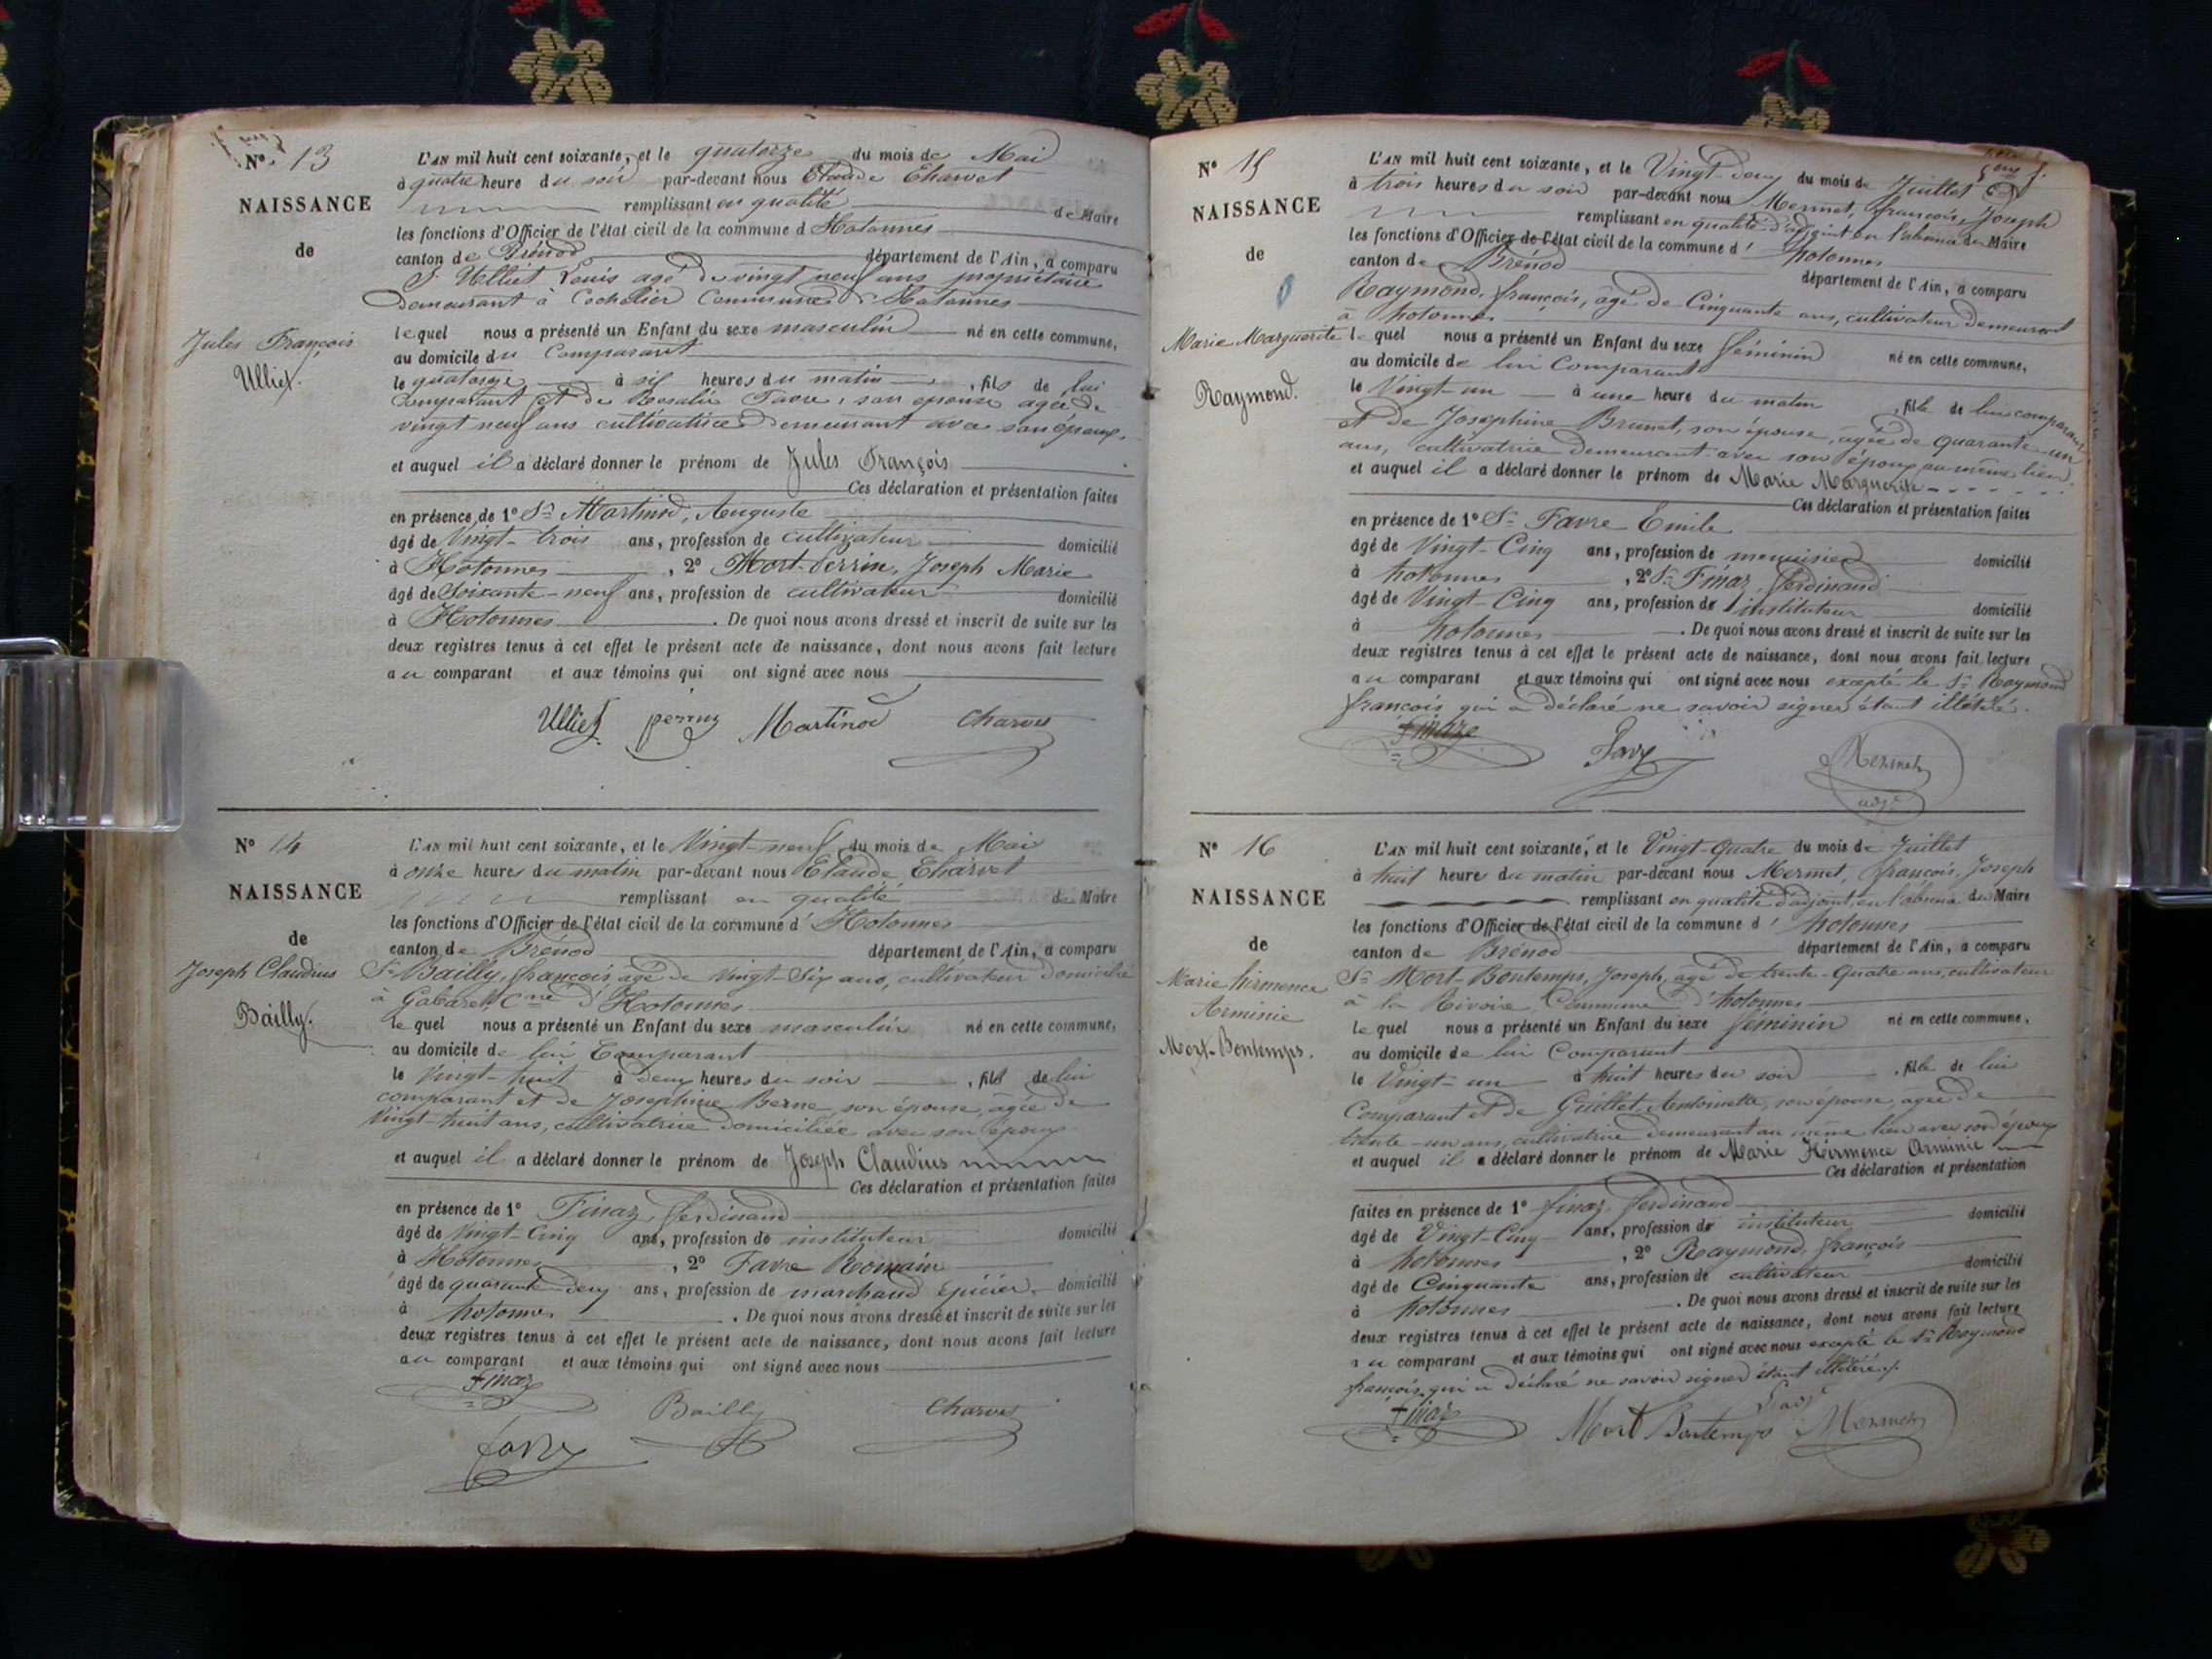 N° 13
NAISSANCE
de
Jules François
Ulliet.
L'AN mil huit cent soixante, et le quatorze du mois de Mai
à quatre heure du soir par-devant nous Claude Charvet
remplissant en qualité de Maire
les fonctions d'Officier de l'état civil de la commune d Hotonnes
canton de Brénod département de l'Ain, a comparu
Sr Ulliet Louis agé de vingt neuf ans propriétaire
demeurant à Cochelier Commune d'Hotonnes
lequel nous a présenté un Enfant du sexe masculin né en cette commune,
au domicile du Comparant
le quatorze à six heures du matin, fils de lui
Comparant et de Rosalie Favre, son épouse agée de
vingt neuf ans cultivatrice demeurant avec son époux.
et auquel il a déclaré donner le prénom de Jules François
Ces déclaration et présentation faites
en présence de 1° Sr Martinod, Auguste
âgé de Vingt-trois ans, profession de cultivateur domicilié
à Hotonnes, 2° Mort-Perrin, Joseph Marie
âgé de Soixante-neuf ans, profession de cultivateur domicilié
à Hotonnes. De quoi nous avons dressé et inscrit de suite sur les
deux registres tenus à cet effet le présent acte de naissance, dont nous avons fait lecture
au comparant et aux témoins qui ont signé avec nous
Ulliet perrin Martinod Charvet
N° 14
NAISSANCE
de
Joseph Claudius
Bailly.
L'AN mil huit cent soixante, et le Vingt-neuf du mois de Mai
à onze heures du matin par-devant nous Claude Charvet
remplissant en qualité de Maire
les fonctions d'Officier de l'état civil de la commune d' Hotonnes
canton de Brénod département de l'Ain, a comparu
Sr Bailly, françois, agé de Vingt-Six ans, cultivateur domicilié
à Gabaret, Cne d'Hotonnes
lequel nous a présenté un Enfant du sexe masculin né en cette commune,
au domicile de lui Comparant
le Vingt-huit à deux heures du soir, fils de lui
comparant et de Josephine Berne, son épouse, agée de
Vingt-huit ans, cultivatrice domiciliée avec son époux
et auquel il a déclaré donner le prénom de Joseph Claudius
Ces déclaration et présentation faites
en présence de 1° Finaz, ferdinand
âgé de Vingt-Cinq ans, profession de instituteur domicilié
à Hotonnes, 2° Favre Romain
âgé de quarante-deux ans, profession de marchand Epicier domicilié
à hotonnes. De quoi nous avons dressé et inscrit de suite sur les
deux registres tenus à cet effet le présent acte de naissance, dont nous avons fait lecture
au comparant et aux témoins qui ont signé avec nous
Finaz
Bailly Charvet
favre
N° 15
NAISSANCE
de
Marie Marguerite
Raymond.
L'AN mil huit cent soixante, et le Vingt deux du mois de Juillet
à trois heures du soir par-devant nous Mermet, françois, Joseph
remplissant en qualité d'adjoint en l'absence du Maire
les fonctions d'Officier de l'état civil de la commune d' hotonnes
canton de Brénod département de l'Ain, a comparu
Raymond, françois, âgé de Cinquante ans, cultivateur demeurant
à hotonnes
lequel nous a présenté un Enfant du sexe féminin né en cette commune,
au domicile de lui Comparant
le Vingt-un à une heure du matin, fille de lui comparant
et de Josephine Brunet, son épouse, agée de quarante-un
ans, cultivatrice demeurant avec son époux au même lieu.
et auquel il a déclaré donner le prénom de Marie Marguerite
Ces déclaration et présentation faites
en présence de 1° Sr Favre Emile
âgé de Vingt-Cinq ans, profession de menuisier domicilié
à hotonnes, 2° Sr Finaz, ferdinand
âgé de Vingt-Cinq ans, profession de instituteur domicilié
à hotonnes. De quoi nous avons dressé et inscrit de suite sur les
deux registres tenus à cet effet le présent acte de naissance, dont nous avons fait lecture
au comparant et aux témoins qui ont signé avec nous excepté le Sr Raymond
françois qui a déclaré ne savoir signer étant illétéré.
Finaz
Favre Mermet
adjt
N° 16
NAISSANCE
de
Marie hirmence
Arminie
Mort-Bontemps.
L'AN mil huit cent soixante, et le Vingt-Quatre du mois de Juillet
à huit heure du matin par-devant nous Mermet, françois, Joseph
remplissant en qualité d'adjoint, en l'absence du Maire
les fonctions d'Officier de l'état civil de la commune d' hotonnes
canton de Brénod département de l'Ain, a comparu
Sr Mort-Bontemps, Joseph, agé de trente-Quatre ans, cultivateur
à la Rivoire, Commune d'hotonnes
lequel nous a présenté un Enfant du sexe féminin né en cette commune,
au domicile de lui Comparant
le Vingt-un à huit heures du soir, fille de lui
Comparant et de Guillet, Antoinette, son épouse, agée de
trente-un ans, cultivatrice demeurant au même lieu avec son époux
et auquel il a déclaré donner le prénom de Marie Hirmence Arminie
Ces déclaration et présentation
faites en présence de 1° finaz, ferdinand
âgé de Vingt-Cinq ans, profession de instituteur domicilié
à hotonnes, 2° Raymond, françois
âgé de Cinquante ans, profession de cultivateur domicilié
à hotonnes. De quoi nous avons dressé et inscrit de suite sur les
deux registres tenus à cet effet le présent acte de naissance, dont nous avons fait lecture
au comparant et aux témoins qui ont signé avec nous excepté le Sr Raymond
françois qui a déclaré ne savoir signer étant illétéré.
Finaz Mort Bontemps Mermet